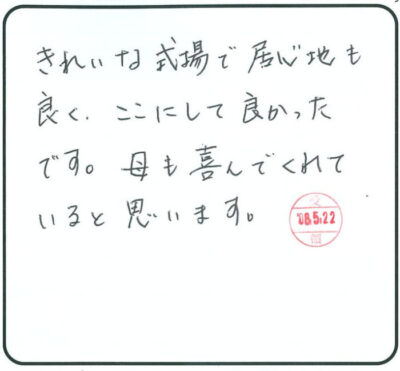 きれいな式場で居心地も
良く、ここにして良かった
です。母も喜んでくれて
いると思います。
'08.5.22